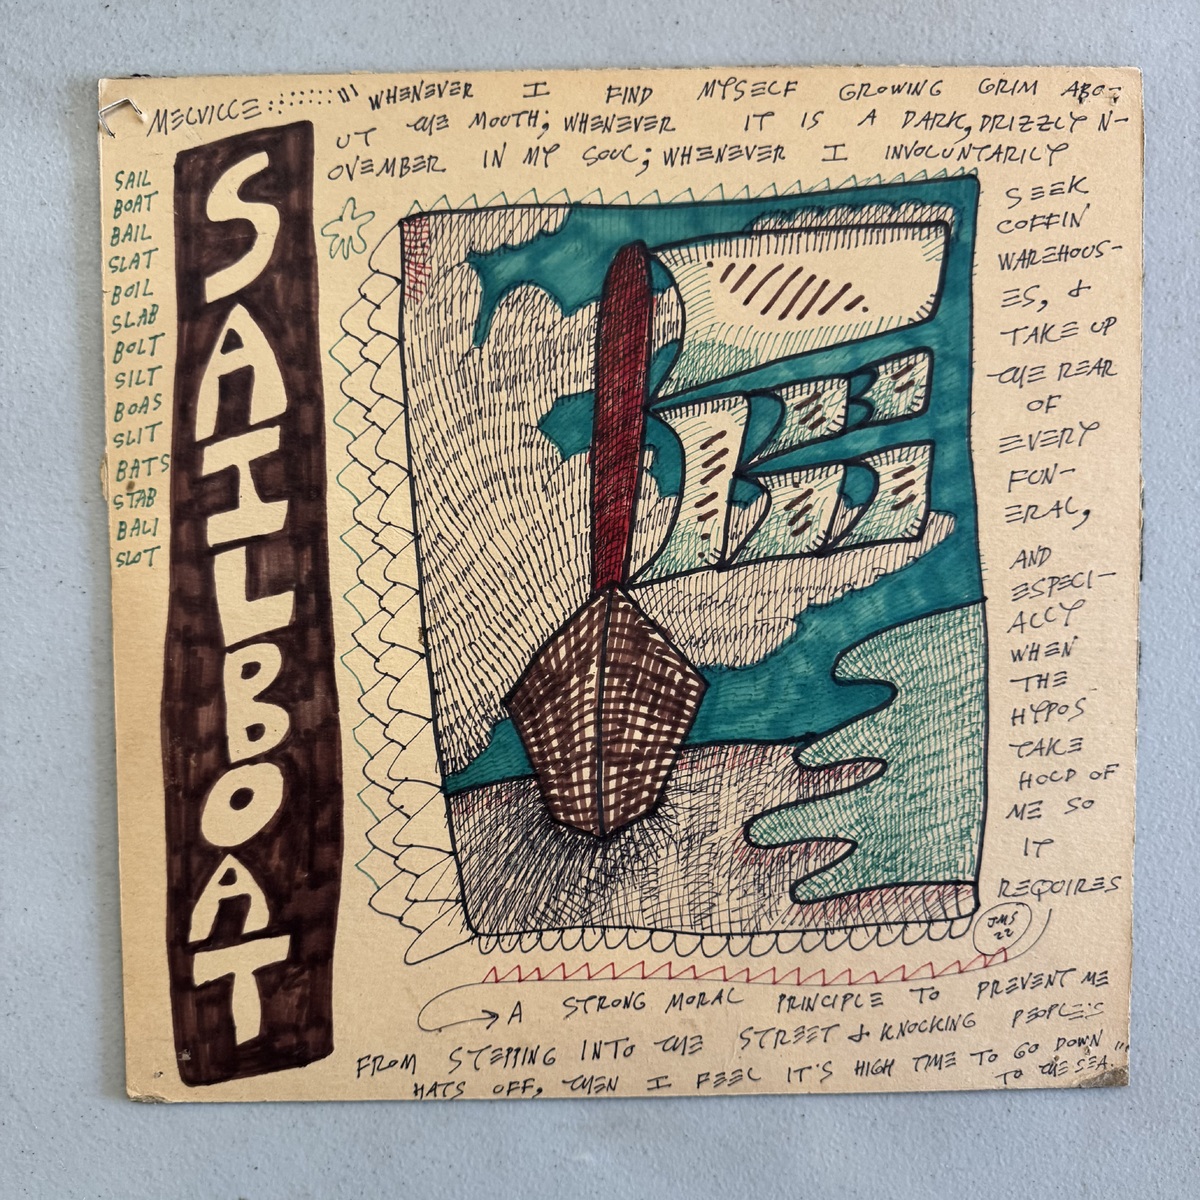 MELVILLE:
"WHENEVER I FIND MYSELF GROWING GRIM ABO-
UT THE MOUTH; WHENEVER IT IS A DARK, DRIZZLY N-
OVEMBER IN MY SOUL; WHENEVER I INVOLUNTARILY
SEEK
COFFIN
WAREHOUS-
ES, &
TAKE UP
THE REAR
OF
EVERY
FUN-
ERAL,
AND
ESPECI-
ALLY
WHEN
THE
HYPOS
TAKE
HOLD OF
ME SO
IT
REQUIRES
A STRONG MORAL PRINCIPLE TO PREVENT ME
FROM STEPPING INTO THE STREET & KNOCKING PEOPLE'S
HATS OFF, THEN I FEEL IT'S HIGH TIME TO GO DOWN
TO THE SEA."
SAIL
BOAT
BAIL
SLAT
BOIL
SLAB
BOLT
SILT
BOAS
SLIT
BATS
STAB
BALI
SLOT
SAILBOAT
JMS
22